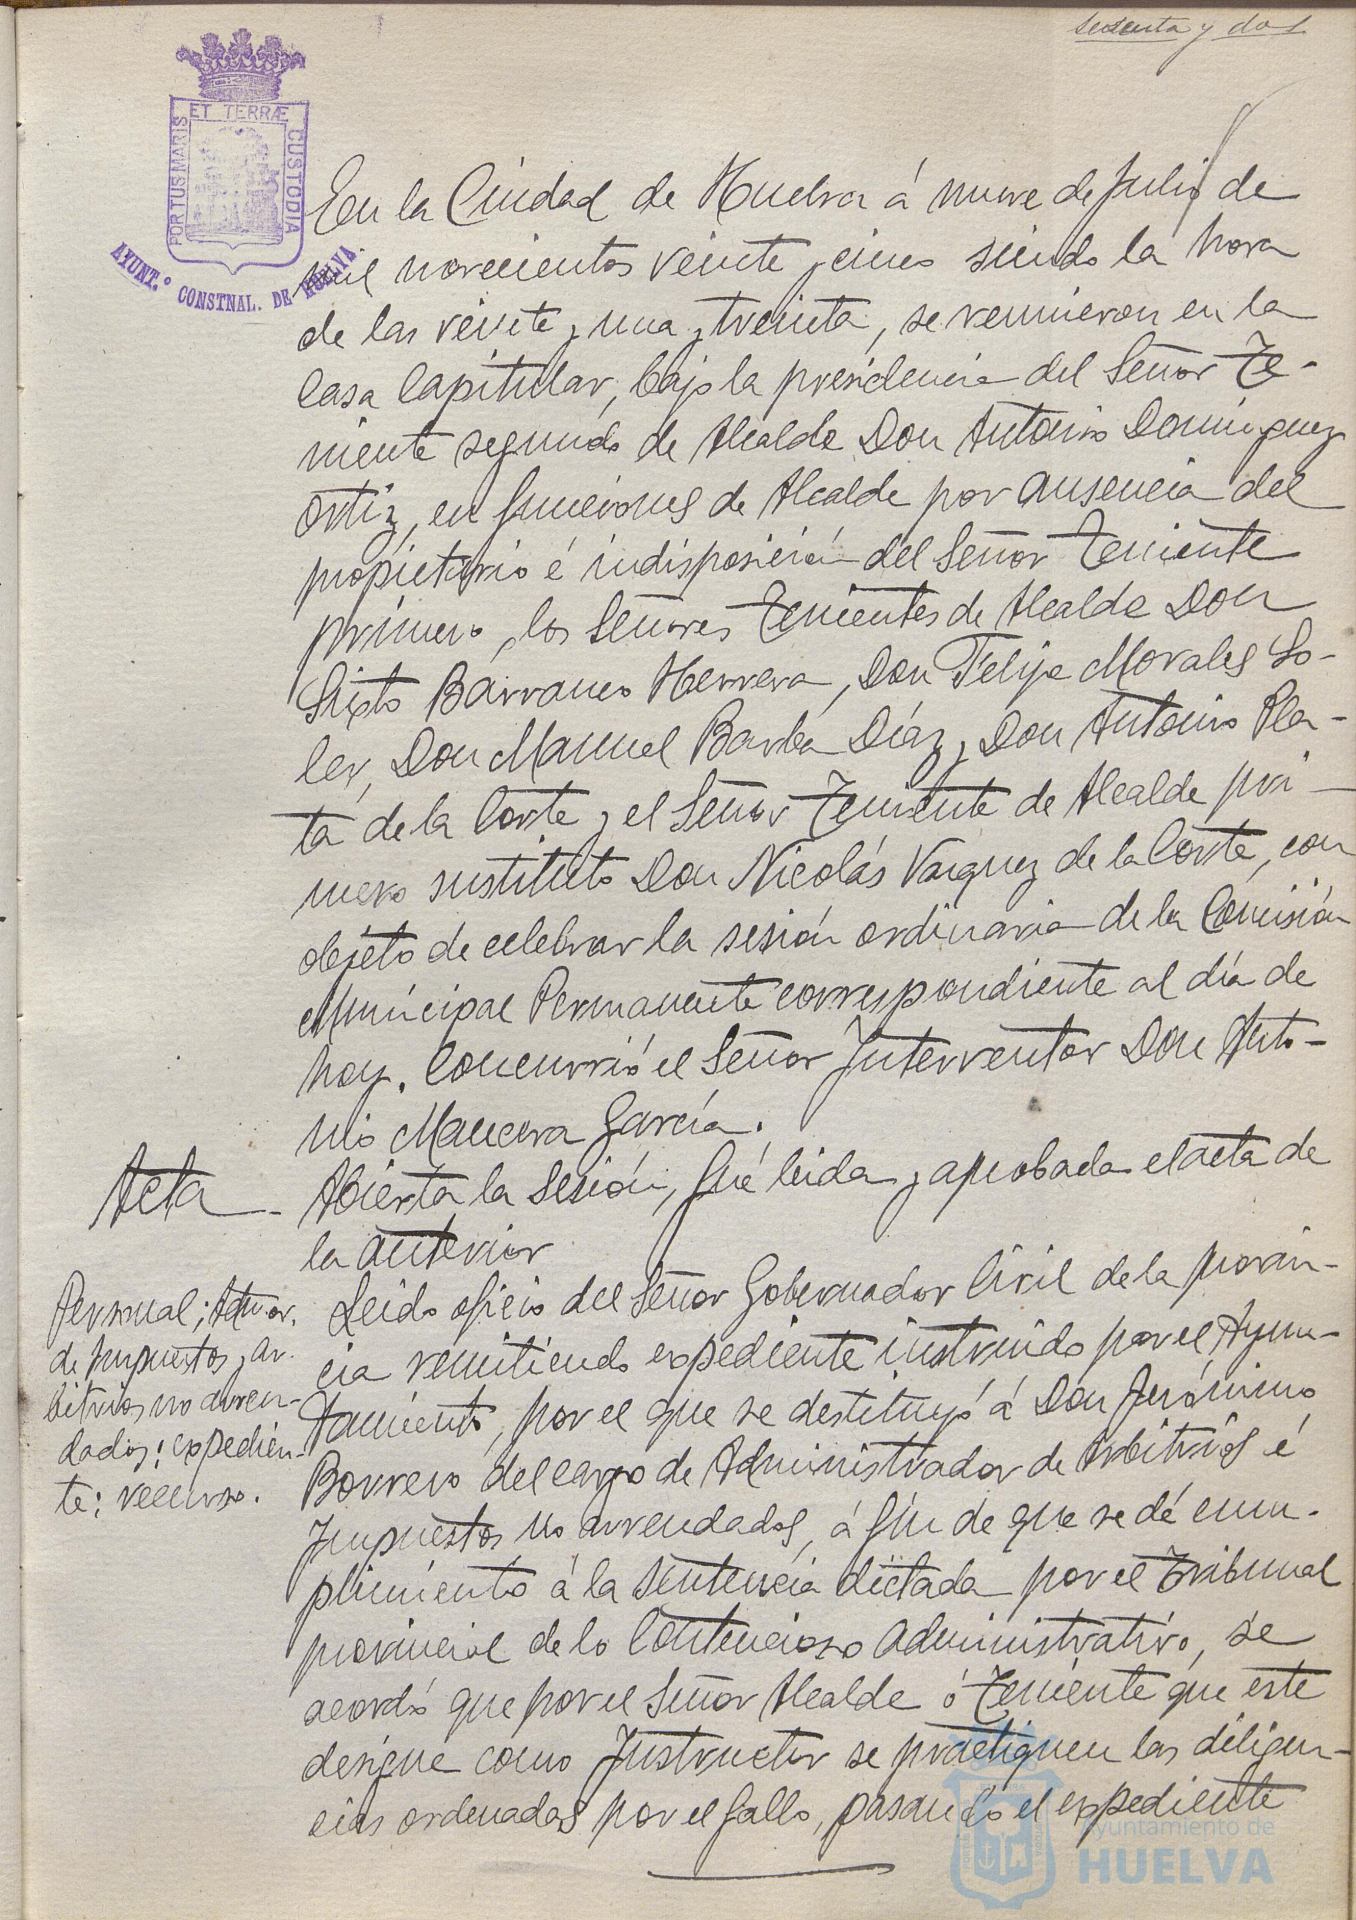 sesenta y dos
ET TERRÆ
PORTUS MARIS
CUSTODIA
AYUNT.º CONSTNAL. DE HUELVA
En la Ciudad de Huelva á nueve de Julio de
mil novecientos veinte y cinco siendo la hora
de las veinte y una y treinta, se reunieron en la
Casa Capitular, bajo la presidencia del Señor Te-
niente segundo de Alcalde Don Antonio Domínguez
Ortiz, en funciones de Alcalde por ausencia del
propietario é indisposición del Señor Teniente
primero, los Señores Tenientes de Alcalde Don
Sixto Barranco Herrera, Don Felipe Morales So-
ler, Don Manuel Barba Díaz y Don Antonio Pla-
ta de la Corte y el Señor Teniente de Alcalde pri-
mero sustituto Don Nicolás Vazquez de la Corte, con
objeto de celebrar la sesión ordinaria de la Comisión
Municipal Permanente correspondiente al día de
hoy. Concurrió el Señor Interventor Don Anto-
nio Mancera García.
Acta
Abierta la Sesión, fué leida y aprobada el acta de
la anterior
Personal; Admor.
de Impuestos y ar-
bitrios no arren-
dados: expedien-
te: recurso.
Leido oficio del Señor Gobernador Civil de la provin-
cia remitiendo expediente instruido por el Ayun-
tamiento, por el que se destituyó á Don Jerónimo
Borrero del cargo de Administrador de Arbitrios é
Impuestos no arrendados, á fin de que se dé cum-
plimiento á la sentencia dictada por el Tribunal
provincial de lo Contencioso Administrativo, se
acordó que por el Señor Alcalde ó Teniente que este
designe como Instructor se practiquen las diligen-
cias ordenadas por el fallo, pasando el expediente
Ayuntamiento de
HUELVA